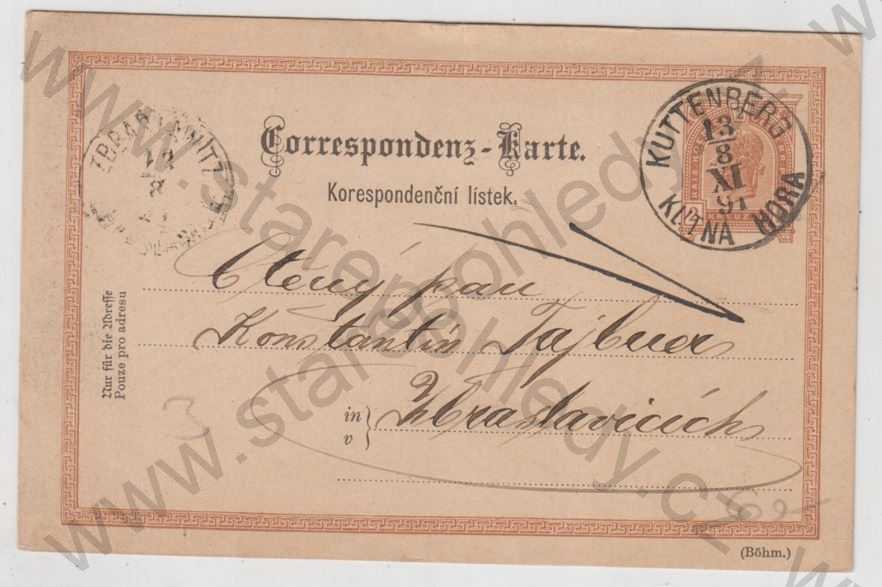 Correspondenz-Karte.
Korespondenční lístek.
KUTTENBERG
13
8
XI
91
KUTNÁ HORA
Ctěný pan
Konstantin Tajbner
in
v
Zbraslavicích
Nur für die Adresse
Pouze pro adresu
3
(Böhm.)
www.starepohledy.cz